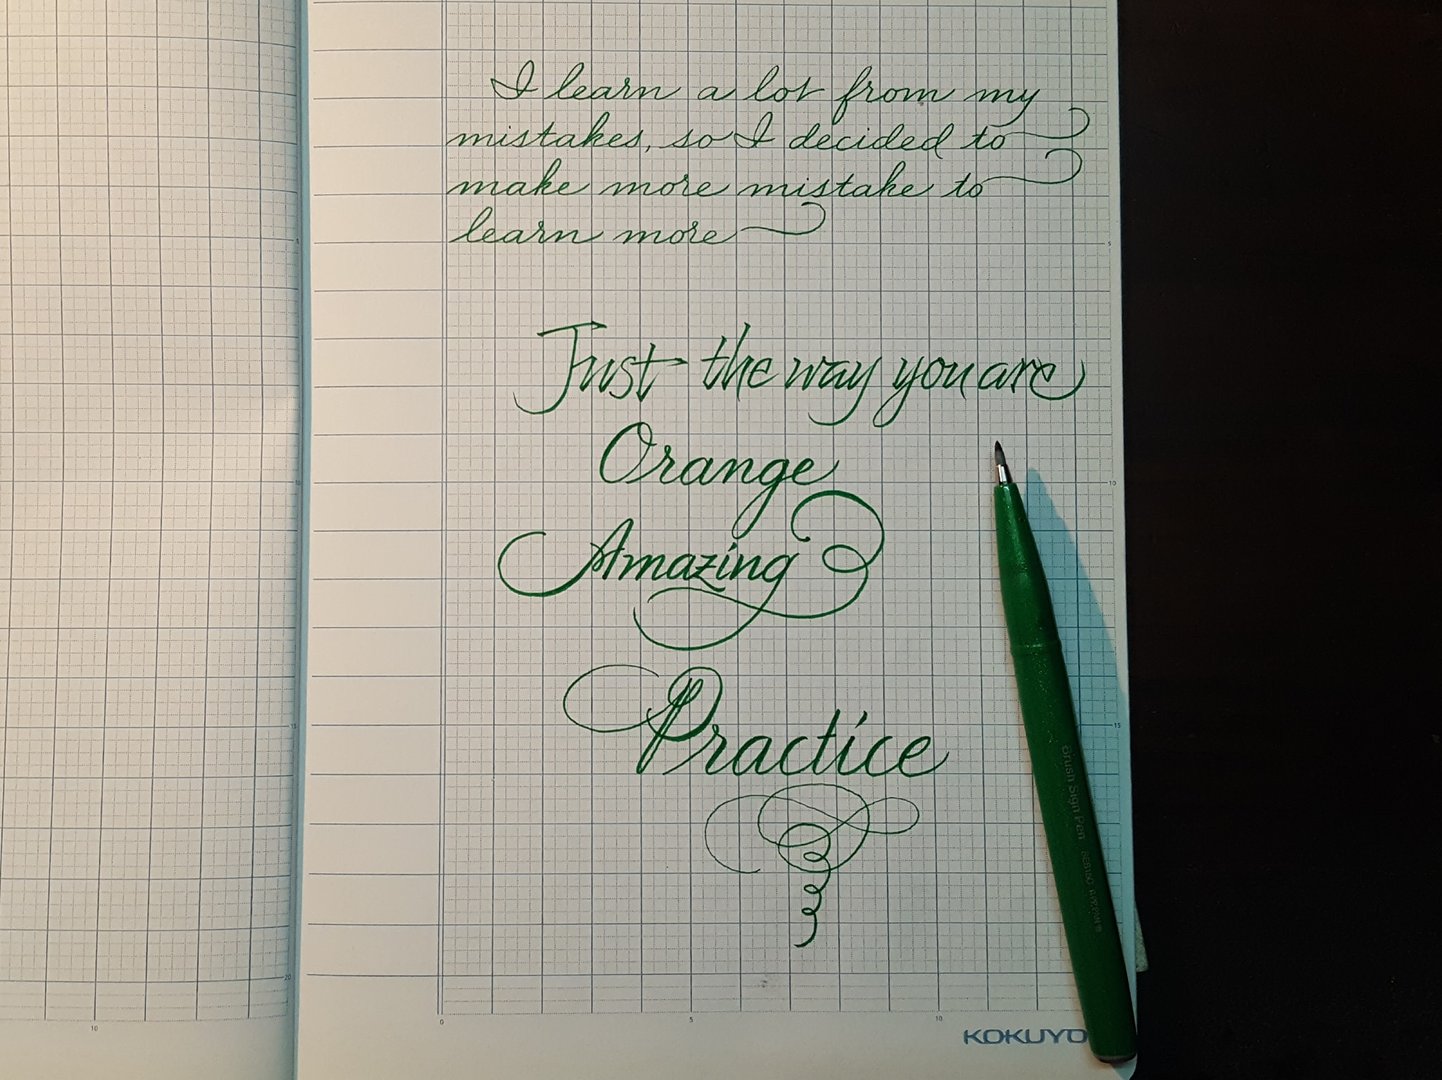 I learn a lot from my
mistakes, so I decided to
make more mistake to
learn more
Just the way you are
Orange
Amazing
Practice
Brush Sign Pen
5
10
15
20
0
5
10
10
KOKUYO